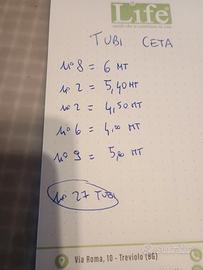 Life
TUBI CETA
N° 8 = 6 MT
N° 2 = 5,40 MT
N° 2 = 4,50 MT
N° 6 = 4,00 MT
N° 9 = 5,00 MT
N° 27 TUBI
Via Roma, 10 - Treviolo (BG)